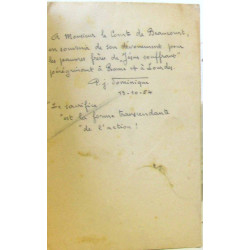 A Monsieur le Comte de Beaumont,
en souvenir de son dévouement pour
les pauvres frères de "Jésus souffrant"
pérégrinant à Rome et à Lourdes
P. J. Dominique
12-10-50
Le sacrifice
"est la forme transcendante
"de l'action !